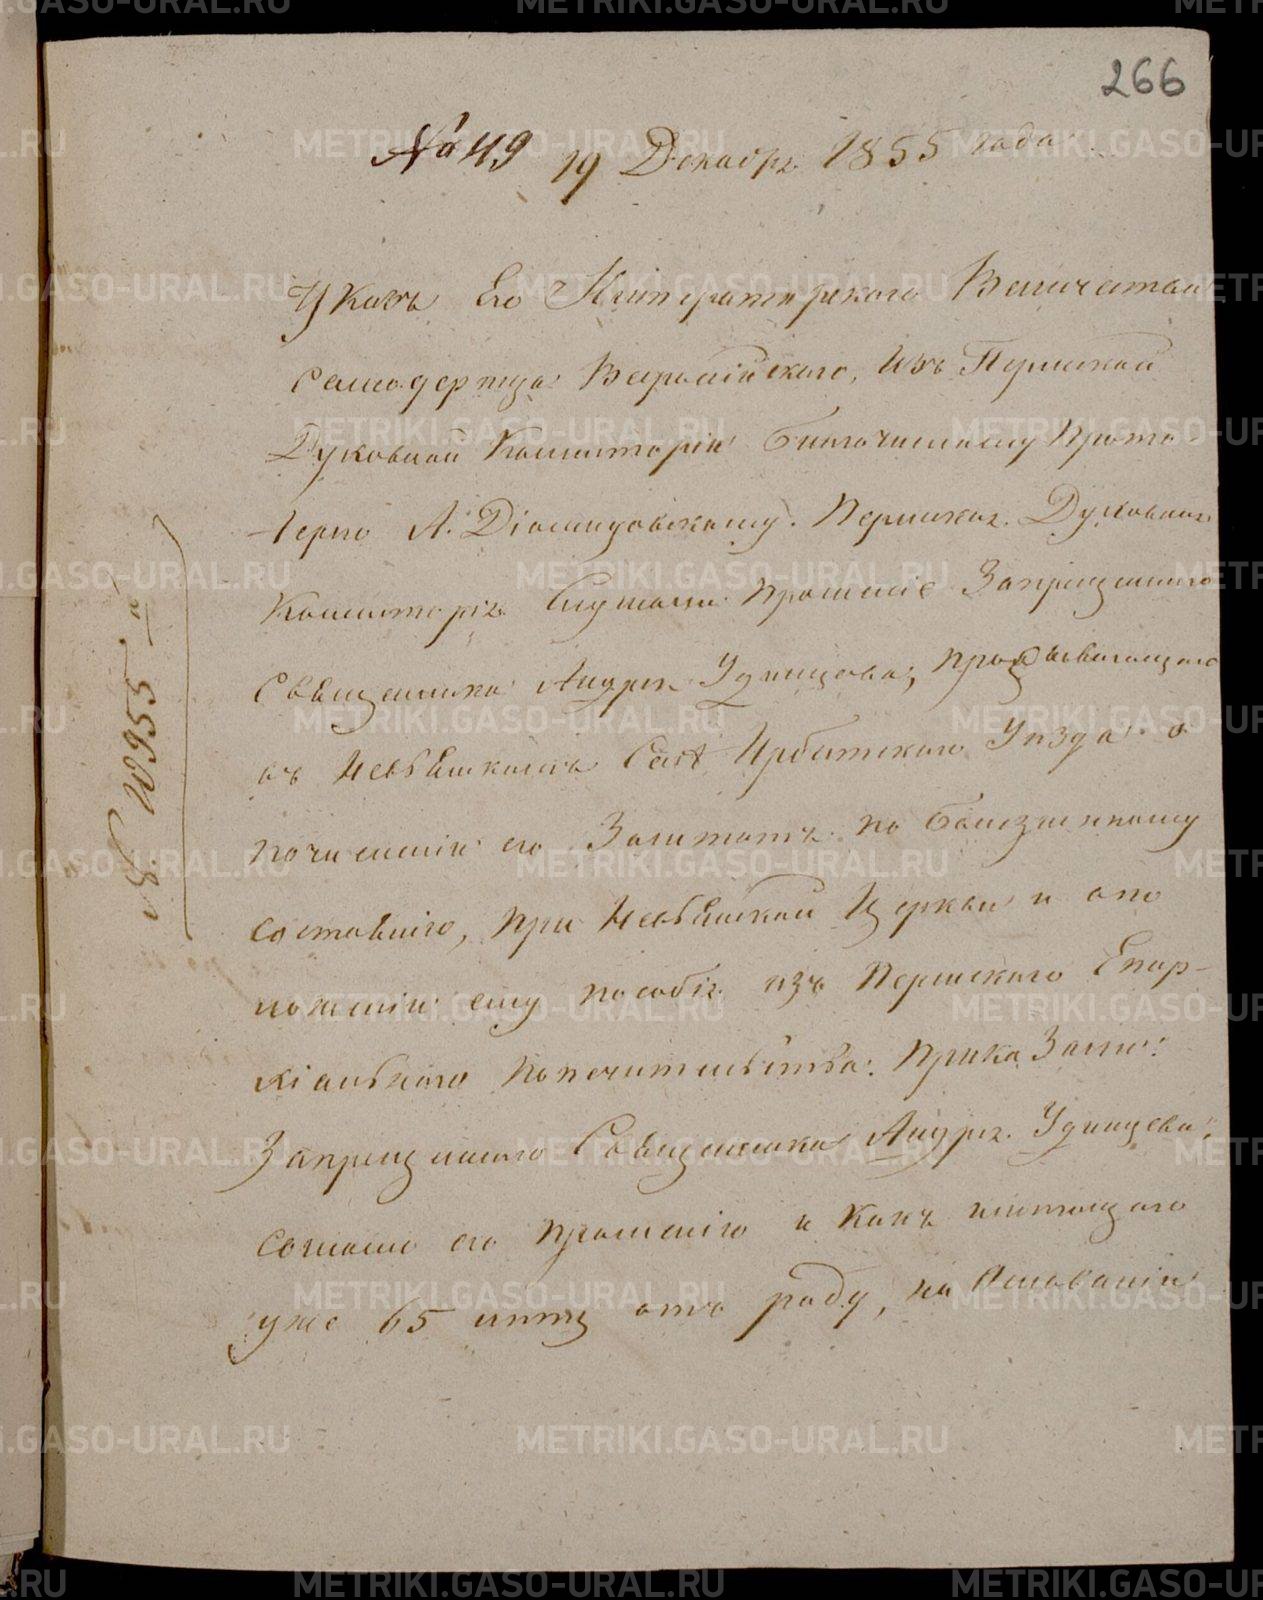 266
№ 49 19 Декабря 1855 года
Указъ Его Императорскаго Величества
Самодержца Всероссійскаго, изъ Пермской
Духовной Консисторіи Благочинному Прото-
іерею А. Діомидовскому. Пермская Духовная
Консисторія Слушали прошеніе Запрещеннаго
Священника Андрея Удинцова, проживающаго
въ Невьянскомъ Селѣ Ирбитскаго Уѣзда о
почисленіи его Заштатъ по болѣзненному
состоянію, при Невьянской Церкви и опо
ложеніи ему пособія изъ Пермскаго Епар-
хіальнаго Попечительства. Приказали:
Запрещеннаго Священника Андрея Удинцева,
согласно его прошенію и какъ имѣющаго
уже 65 лѣтъ отъ роду, на Основаніи
№ 10955 й
METRIKI.GASO-URAL.RU